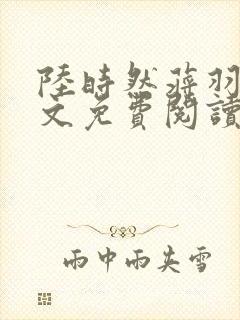 陸時然蔣羽
文免費閱讀
雨中雨夾雪